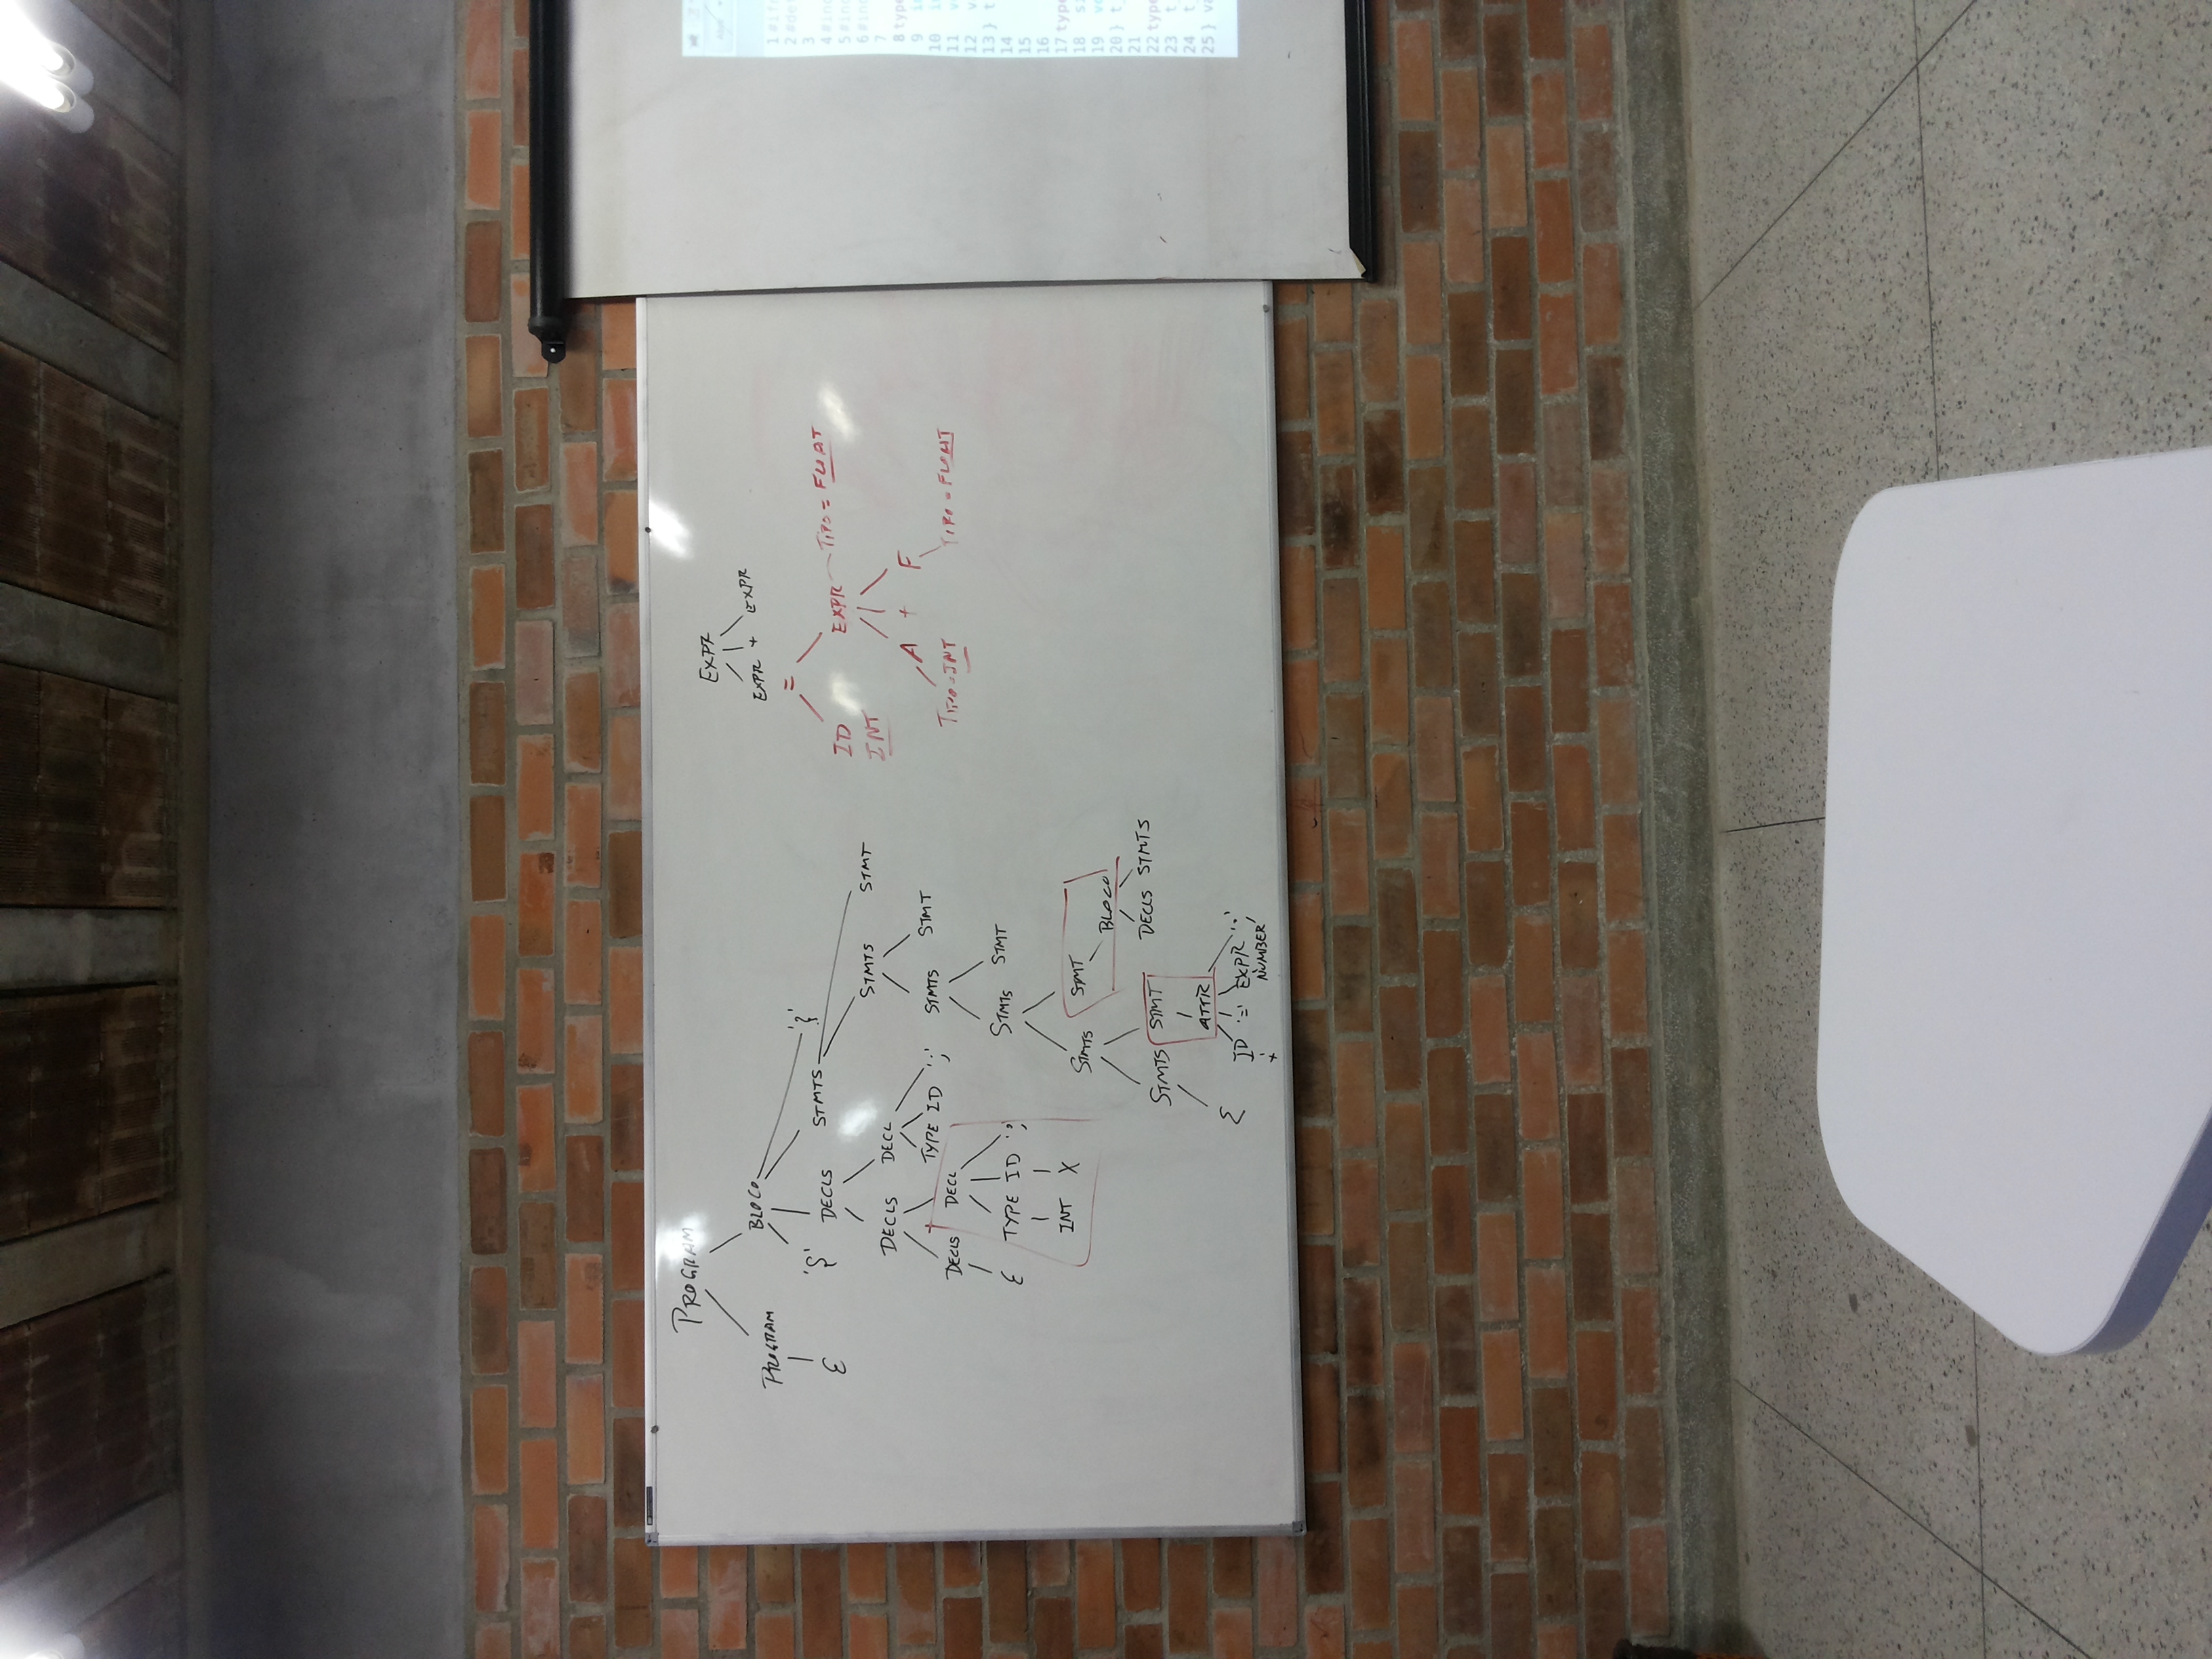 PROGRAM
PROGRAM BLOCO
ε '{' DECLS STMTS '}'
DECLS DECL STMTS STMT
DECLS DECL TYPE ID ';' STMTS STMT
ε TYPE ID ';' STMTS STMT
INT X STMTS STMT
BLOCO
STMTS STMT DECLS STMTS
ε ATTR
ID '=' EXPR ';'
NUMBER
EXPR
EXPR + EXPR
=
ID EXPR TIPO = FLOAT
INT
A + F
TIPO = INT TIPO = FLOAT
1 #if
2 #de
3
4 #in
5 #in
6 #in
7
8 type
9
10
11
12
13 } t
14
15
16
17 type
18
19
20 } t
21
22 type
23 t
24 t
25 } va